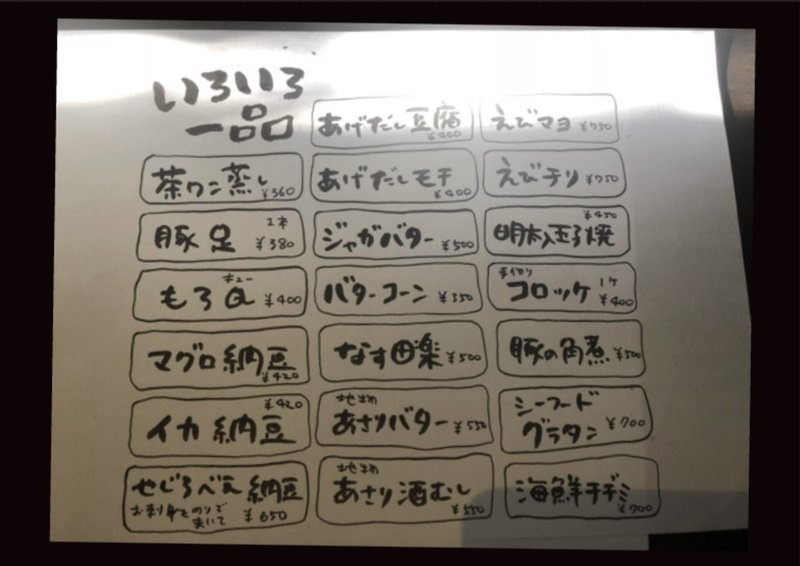 いろいろ
一品
茶ワン蒸し ¥360
豚足 1本 ¥380
もろQ キュー ¥400
マグロ納豆 ¥420
イカ納豆 ¥420
せじろべえ納豆
お刺身をのりで
まいて ¥650
あげだし豆腐 ¥400
あげだしモチ ¥400
ジャガバター ¥500
バターコーン ¥350
なす田楽 ¥500
地物
あさりバター ¥550
地物
あさり酒むし ¥550
えびマヨ ¥750
えびチリ ¥750
明太入玉子焼 ¥450
手作り
コロッケ 1ケ ¥400
豚の角煮 ¥500
シーフード
グラタン ¥700
海鮮チヂミ ¥700